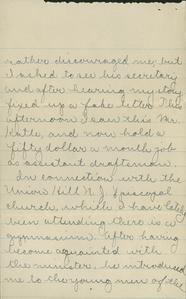 rather discouraged me, but
I asked to see his secretary
and after hearing my story
fixed up a fake letter. This
afternoon I saw this Mr.
Katte, and now hold a
fifty dollar a month job
as assistant draftsman.
In connection with the
Union Hill N.J. Episcopal
church, which I have lately
been attending there is a
gymnasium. After having
become acquainted with
the minister, he introduced
me to the young men of the